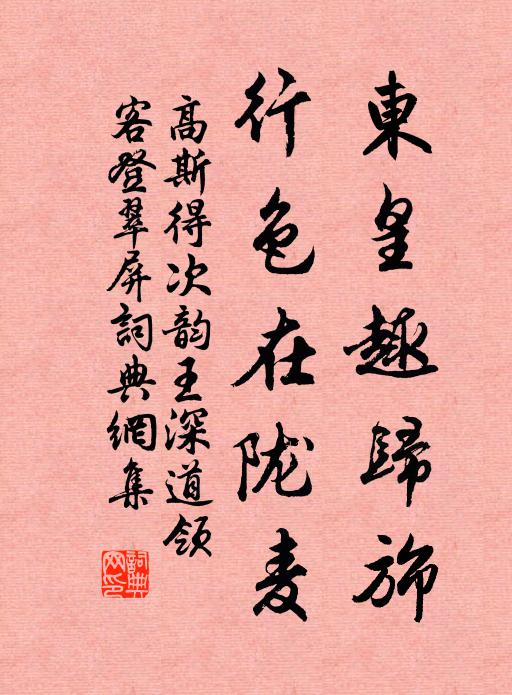 東皇趣歸斾
行色在陇麦
高斯得次韵王深道领
客登翠屏詞典網集
詞典网印